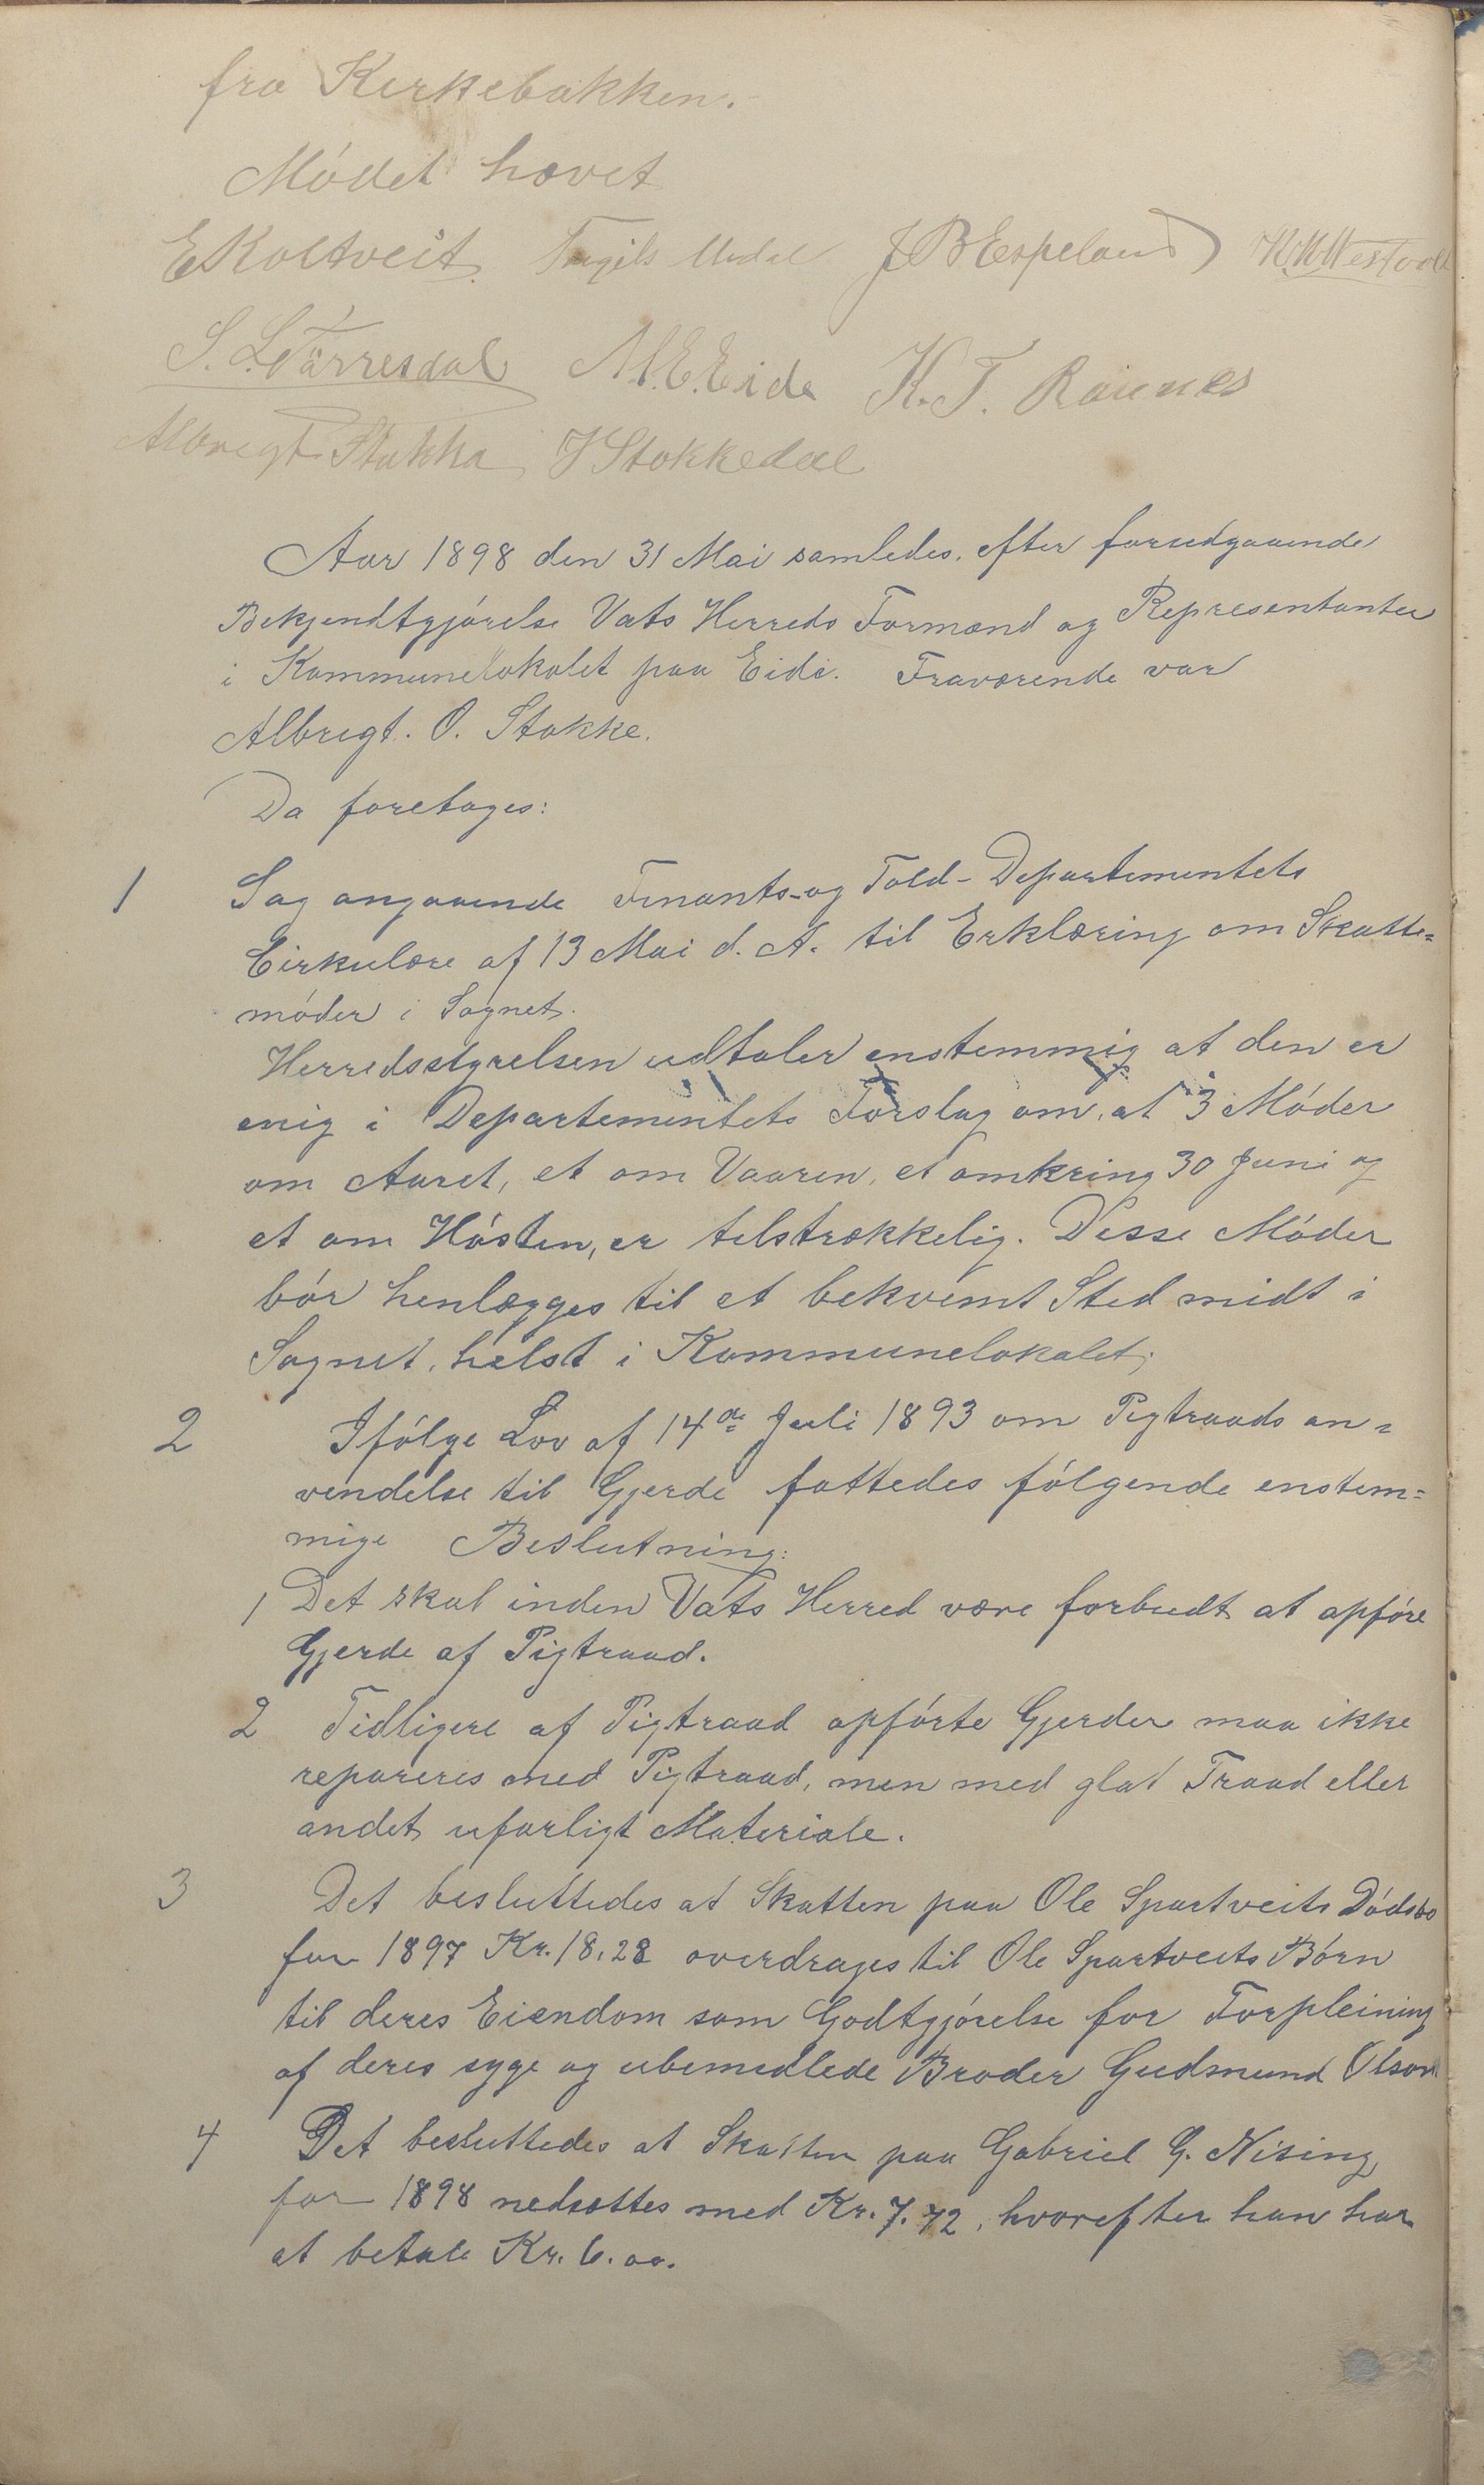 fra Kirkebakken.
Mödet hævet
E Koltveit. Torgils Undal J B Espeland K. K. Westvold
S. L. Tärresdal M. E. Eide K. T. Raunes
Albregt Stakka J Stokkedal
Aar 1898 den 31 Mai samledes, efter forudgaaende
Bekjendtgjörelse Vats Herreds Formænd og Representanter
i Kommunelokalet paa Eide. Fraværende var
Albregt. O. Stakke.
Da foretoges:
1 Sag angaaende Finants-og Told-Departementets
Cirkulære af 13 Mai d. A. til Erklæring om Skatte=
möder i Sognet.
Herredsstyrelsen udtaler enstemmig at den er
enig i Departementets Forslag om, at 3 Möder
om Aaret, et om Vaaren, et omkring 30 Juni og
et om Hösten, er tilstrækkelig. Disse Möder
bör henlægges til et bekvemt Sted midt i
Sognet, helst i Kommunelokalet;
2 Ifölge Lov af 14de Juli 1893 om Pigtraads an=
vendelse til Gjerde fattedes fölgende enstem=
mige Beslutning:
1 Det skal inden Vats Herred være forbudt at opföre
Gjerde af Pigtraad.
2 Tidligere af Pigtraad opförte Gjerder maa ikke
repareres med Pigtraad, men med glat Traad eller
andet ufarligt Materiale.
3 Det besluttedes at Skatten paa Ole Spartveits Dödsbo
for 1897 Kr. 18.28 overdrages til Ole Spartveits Börn
til deres Eiendom som Godtgjörelse for Forpleining
af deres syge og ubemedlede Broder Gudmund Olson
4 Det besluttedes at Skatten paa Gabriel G. Nising
for 1898 nedsættes med Kr. 7.72, hvorefter han har
at betale Kr. 6.00.